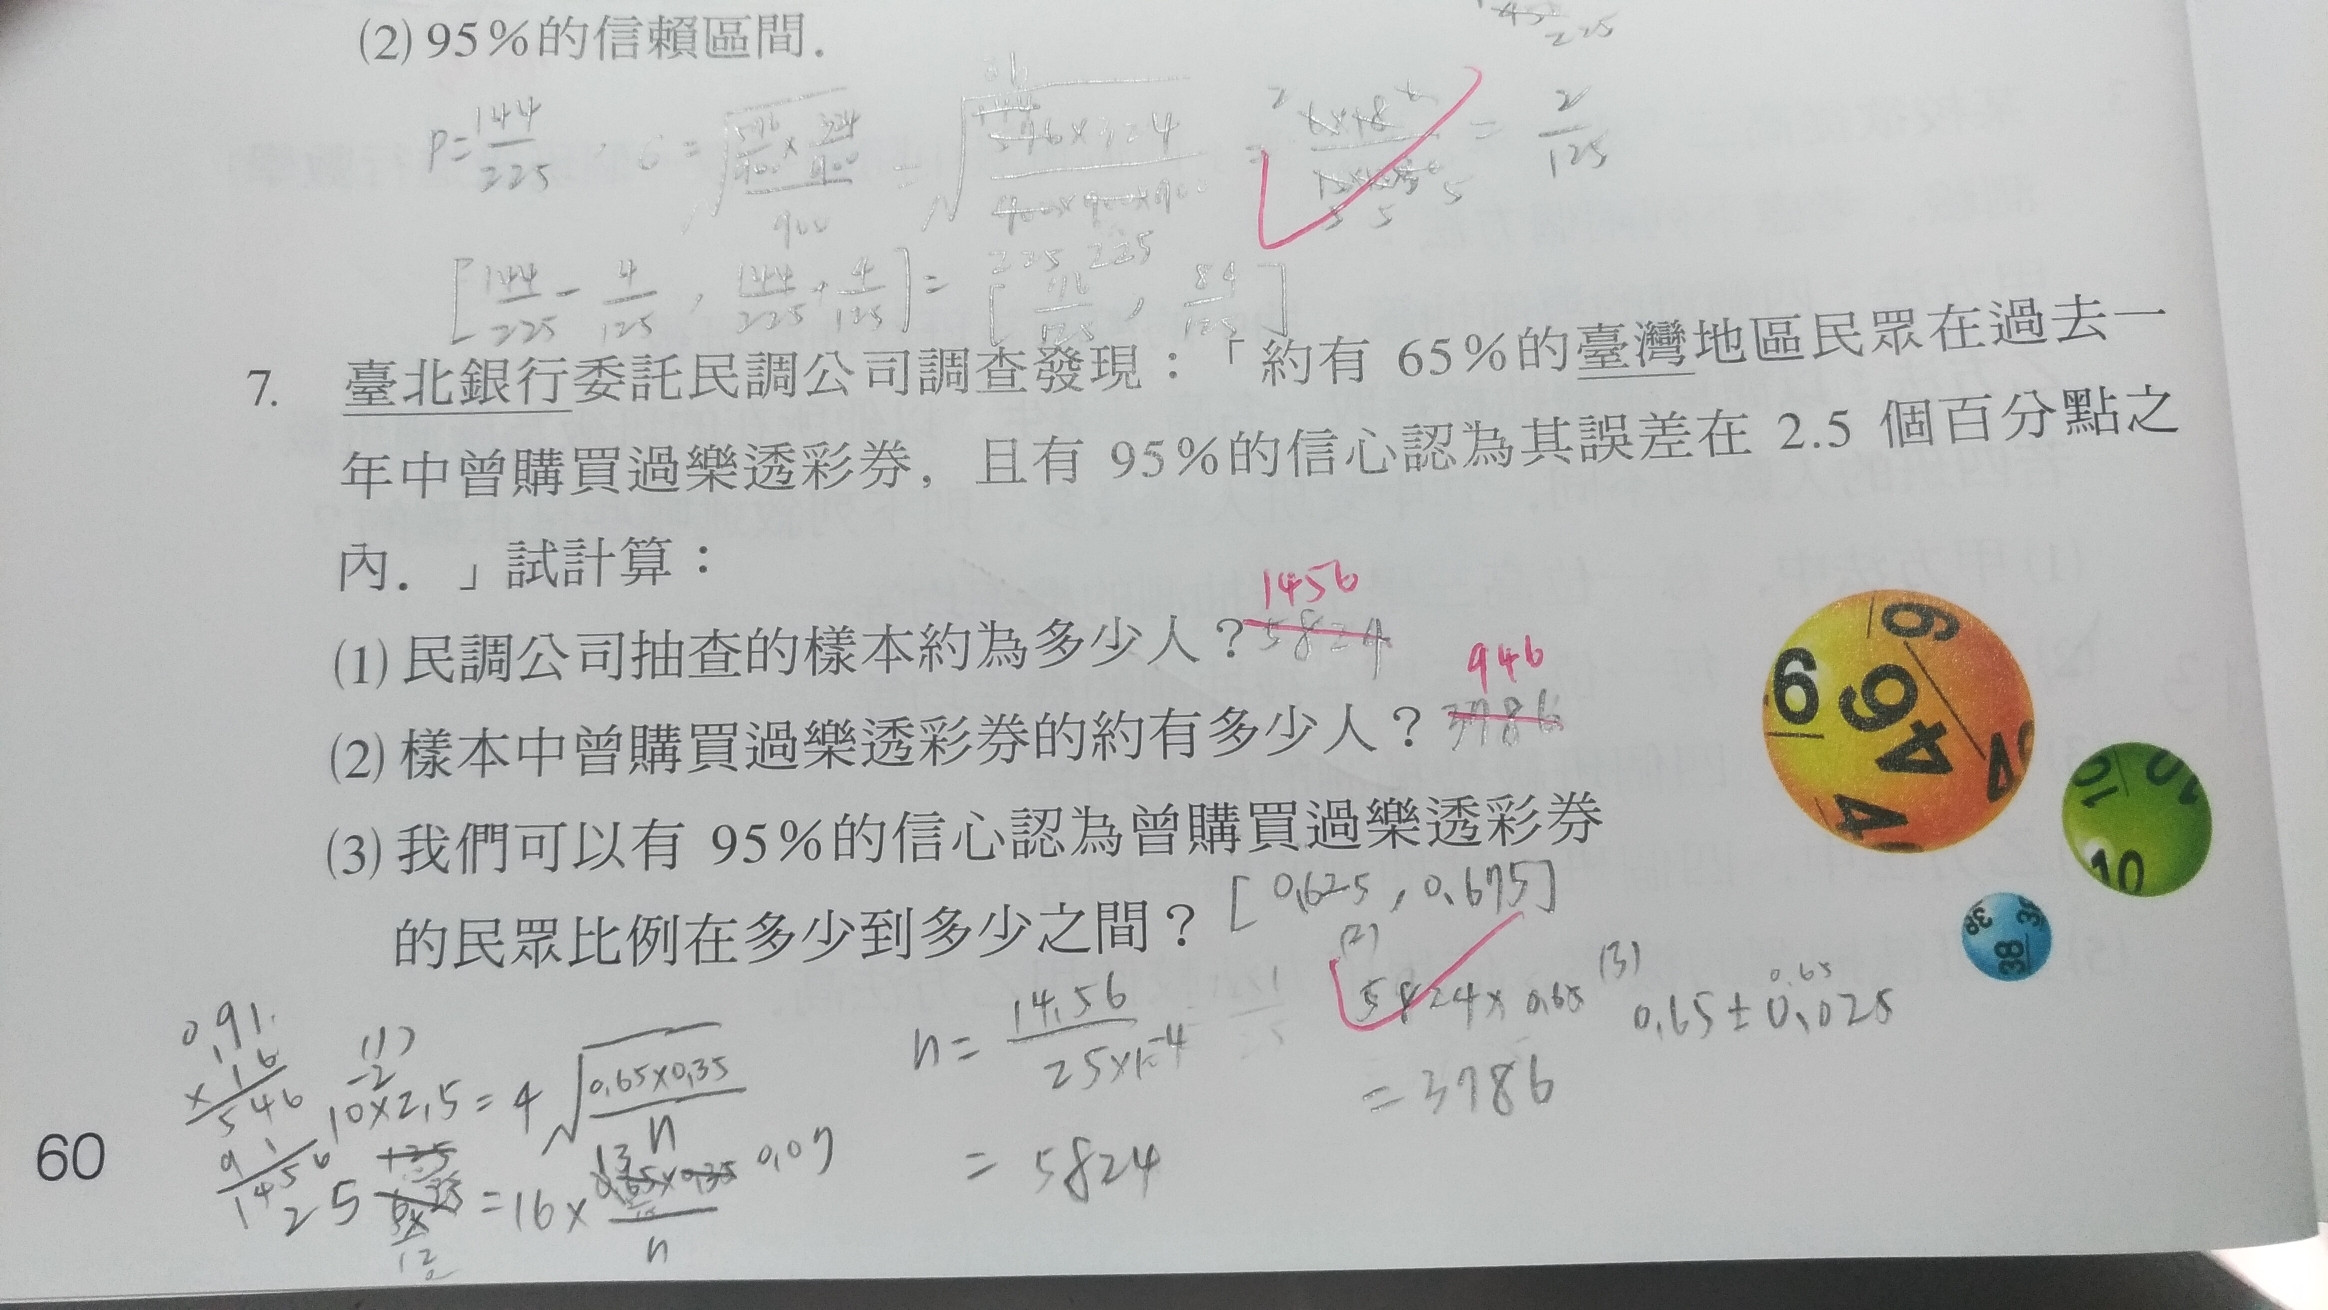 (2) 95%的信賴區間.
P=144/225
= 2/125
[144/225 - 4/125 , 144/225 + 4/125] = [76/125 , 84/125]
7. 臺北銀行委託民調公司調查發現：「約有 65%的臺灣地區民眾在過去一
年中曾購買過樂透彩券，且有 95%的信心認為其誤差在 2.5 個百分點之
內．」試計算：
(1) 民調公司抽查的樣本約為多少人？5824 1456
(2) 樣本中曾購買過樂透彩券的約有多少人？3786 946
(3) 我們可以有 95%的信心認為曾購買過樂透彩券
的民眾比例在多少到多少之間？[0.625 , 0.675]
0.91
×16
546
91
1456
(1)
10⁻²×2.5 = 4√(0.65×0.35/n)
n = 14.56/25×10⁻⁴
= 5824
(2)
5824×0.65
= 3786
(3)
0.65
0.65±0.025
60
6
9
46
10
38